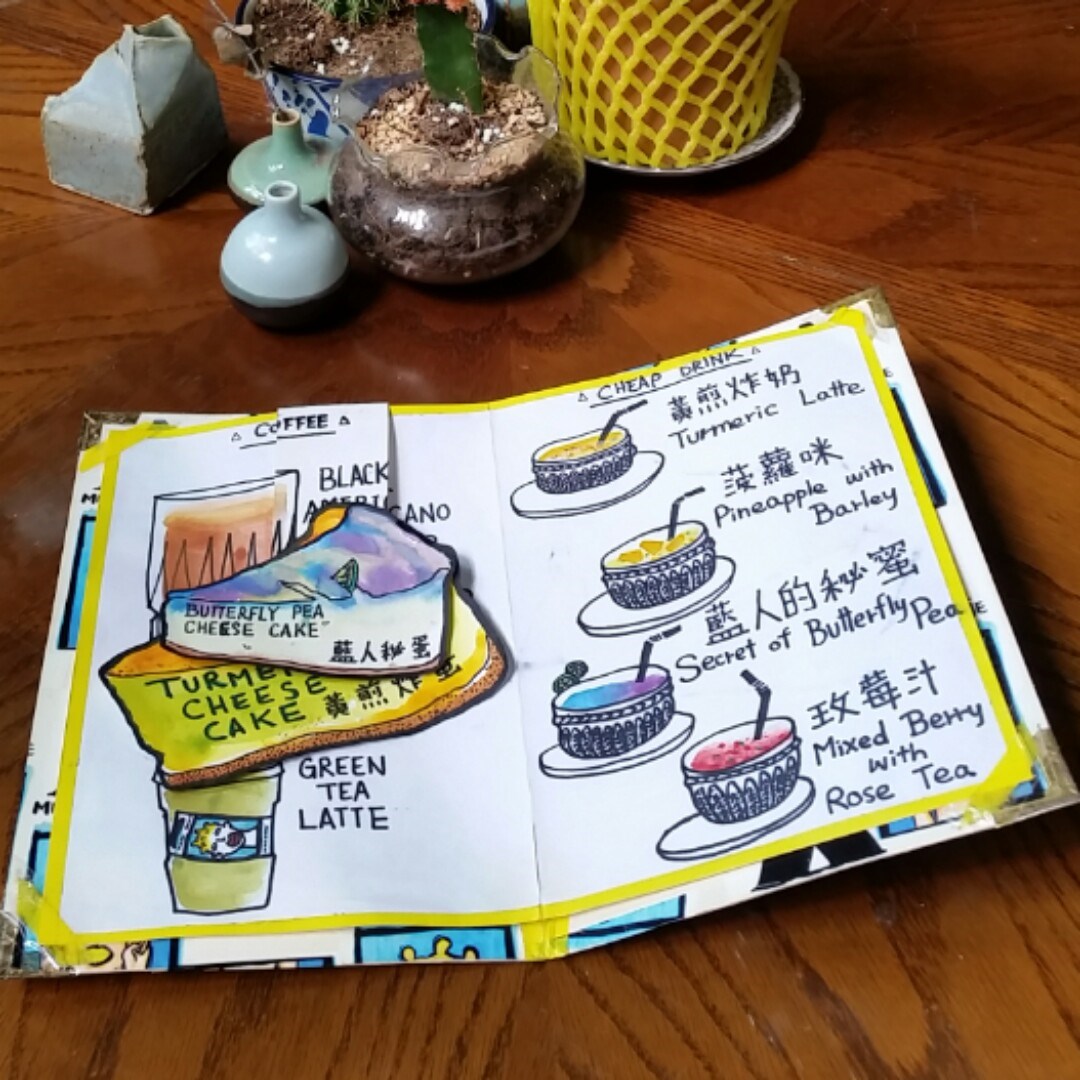 COFFEE
BLACK
AMERICANO
BUTTERFLY PEA
CHEESE CAKE
藍人秘蛋
TURMERIC
CHEESE
CAKE
黃煎炸蛋
GREEN
TEA
LATTE
CHEAP DRINK
黃煎炸奶
Turmeric Latte
菠蘿咪
Pineapple with
Barley
藍人的秘蜜
Secret of Butterfly Pea
玫莓汁
Mixed Berry
with
Rose Tea